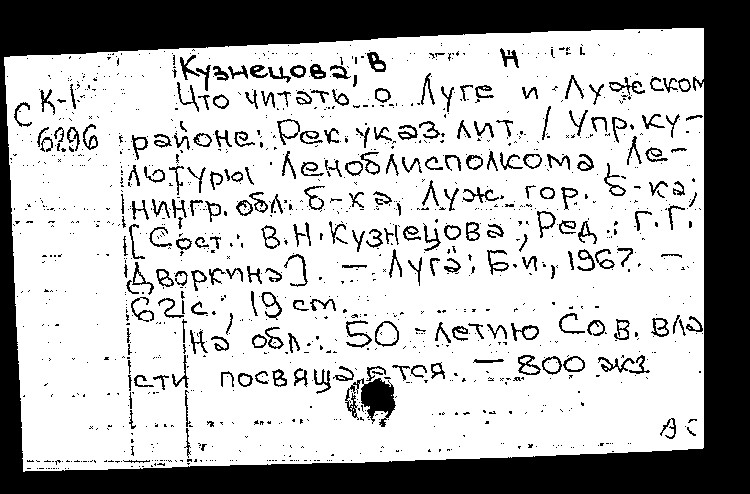 Кузнецова, В Н
С К-1 Что читать о Луге и Лужском
6296 районе: Рек. указ. лит. / Упр. ку-
льтуры Леноблисполкома, Ле-
нингр. обл. б-ка, Луж. гор. б-ка;
[Сост.: В.Н. Кузнецова; Ред.: Г.Г.
Дворкина]. — Луга: Б.и., 1967. —
62 с.; 19 см.
На обл.: 50-летию Сов. вла
сти посвящается. — 800 экз.
АС